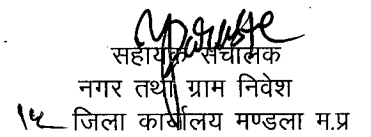 सहायक संचालक
नगर तथा ग्राम निवेश
जिला कार्यालय मण्डला म.प्र